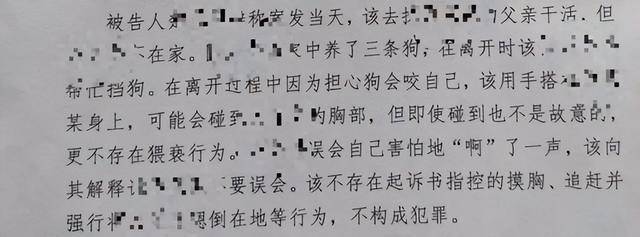 被告人 称案发当天，该去找 父亲干活，但
在家。 家中养了三条狗，在离开时该
帮忙挡狗。在离开过程中因为担心狗会咬自己，该用手搭
某身上，可能会碰到 的胸部，但即使碰到也不是故意的，
更不存在猥亵行为。 误会自己害怕地“啊”了一声，该向
其解释 不要误会。该不存在起诉书指控的摸胸、追赶并
强行将 摁倒在地等行为，不构成犯罪。